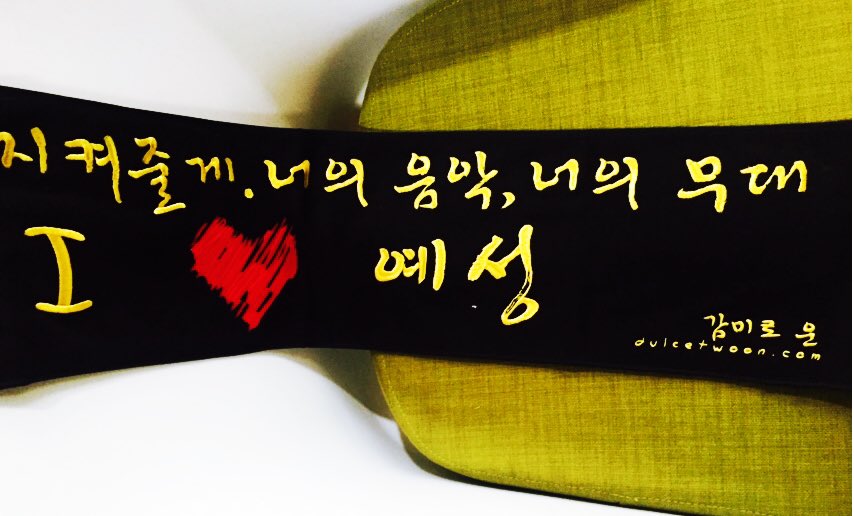 지켜줄게.너의 음악,너의 무대
I ♥ 예성
감미로운
dulcetwoon.com